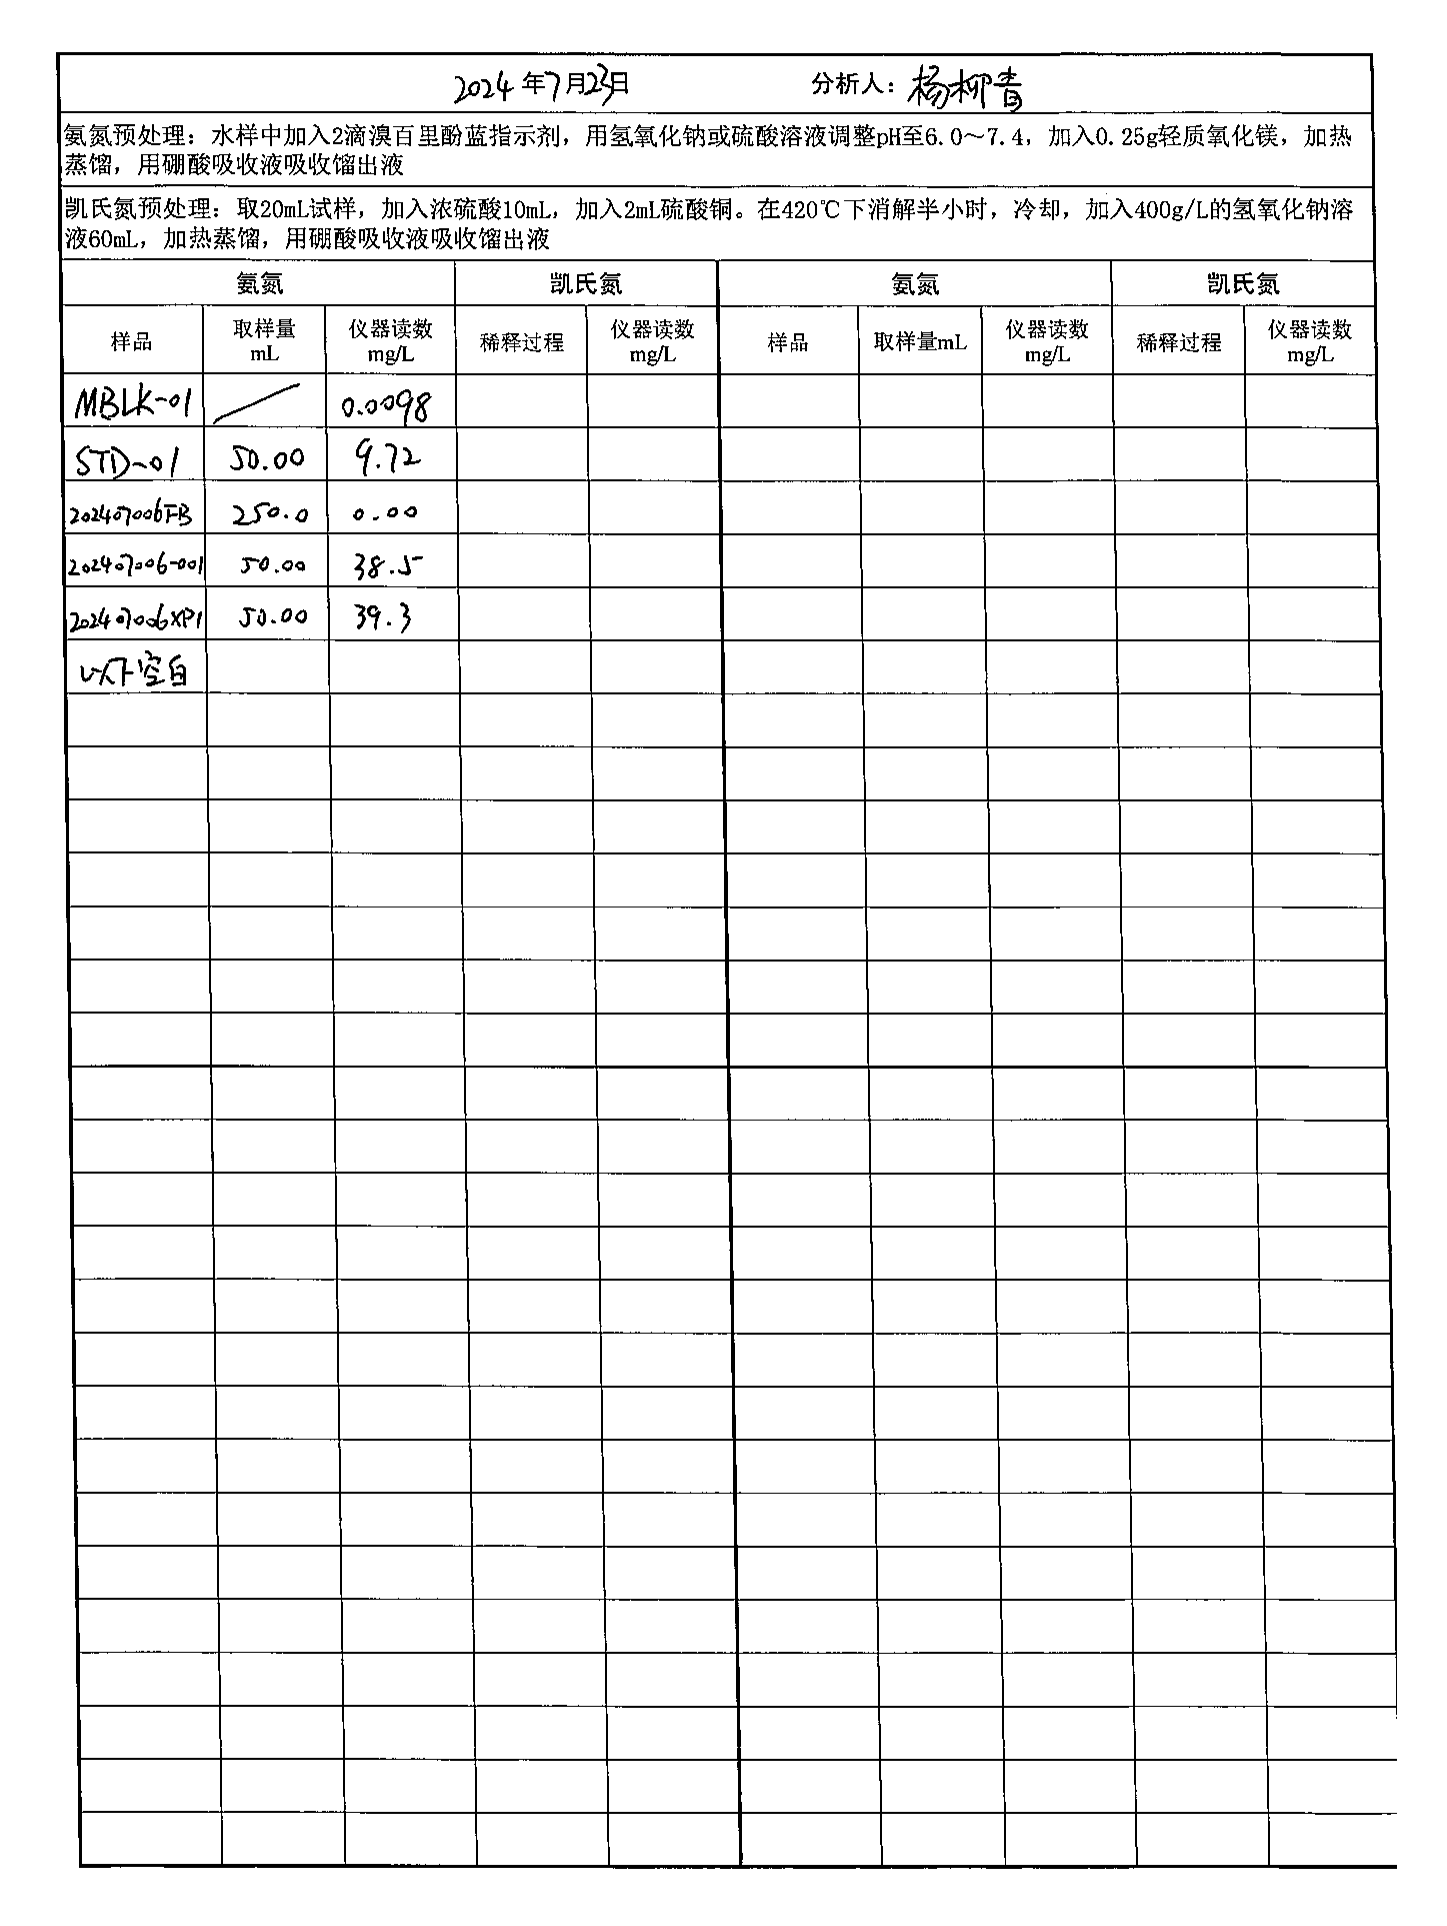 2024年7月23日 分析人：杨柳青
氨氮预处理：水样中加入2滴溴百里酚蓝指示剂，用氢氧化钠或硫酸溶液调整pH至6.0～7.4，加入0.25g轻质氧化镁，加热
蒸馏，用硼酸吸收液吸收馏出液
凯氏氮预处理：取20mL试样，加入浓硫酸10mL，加入2mL硫酸铜。在420℃下消解半小时，冷却，加入400g/L的氢氧化钠溶
液60mL，加热蒸馏，用硼酸吸收液吸收馏出液
氨氮 凯氏氮 氨氮 凯氏氮
样品 取样量 mL 仪器读数 mg/L 稀释过程 仪器读数 mg/L 样品 取样量mL 仪器读数 mg/L 稀释过程 仪器读数 mg/L
MBLK-01 / 0.0098
STD-01 50.00 9.72
202407006FB 250.0 0.00
202407006-001 50.00 38.5
202407006XP1 50.00 39.3
以下空白